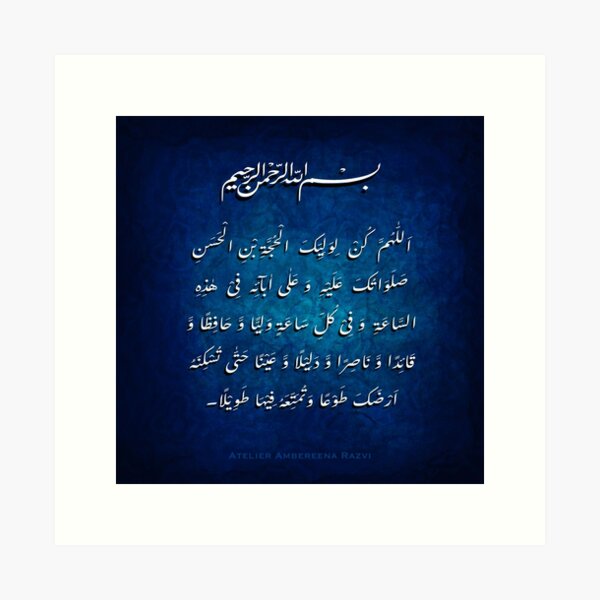 بِسْمِ اللهِ الرَّحْمٰنِ الرَّحِيْمِ
اَللّٰهُمَّ كُنْ لِوَلِيِّكَ الْحُجَّةِ بْنِ الْحَسَنِ
صَلَوَاتُكَ عَلَيْهِ وَ عَلٰى اٰبَآئِهٖ فِيْ هٰذِهِ
السَّاعَةِ وَ فِيْ كُلِّ سَاعَةٍ وَلِيًّا وَّ حَافِظًا وَّ
قَائِدًا وَّ نَاصِرًا وَّ دَلِيْلًا وَّ عَيْنًا حَتّٰى تُسْكِنَهٗ
اَرْضَكَ طَوْعًا وَتُمَتِّعَهٗ فِيْهَا طَوِيْلًا۔
Atelier Ambereena Razvi